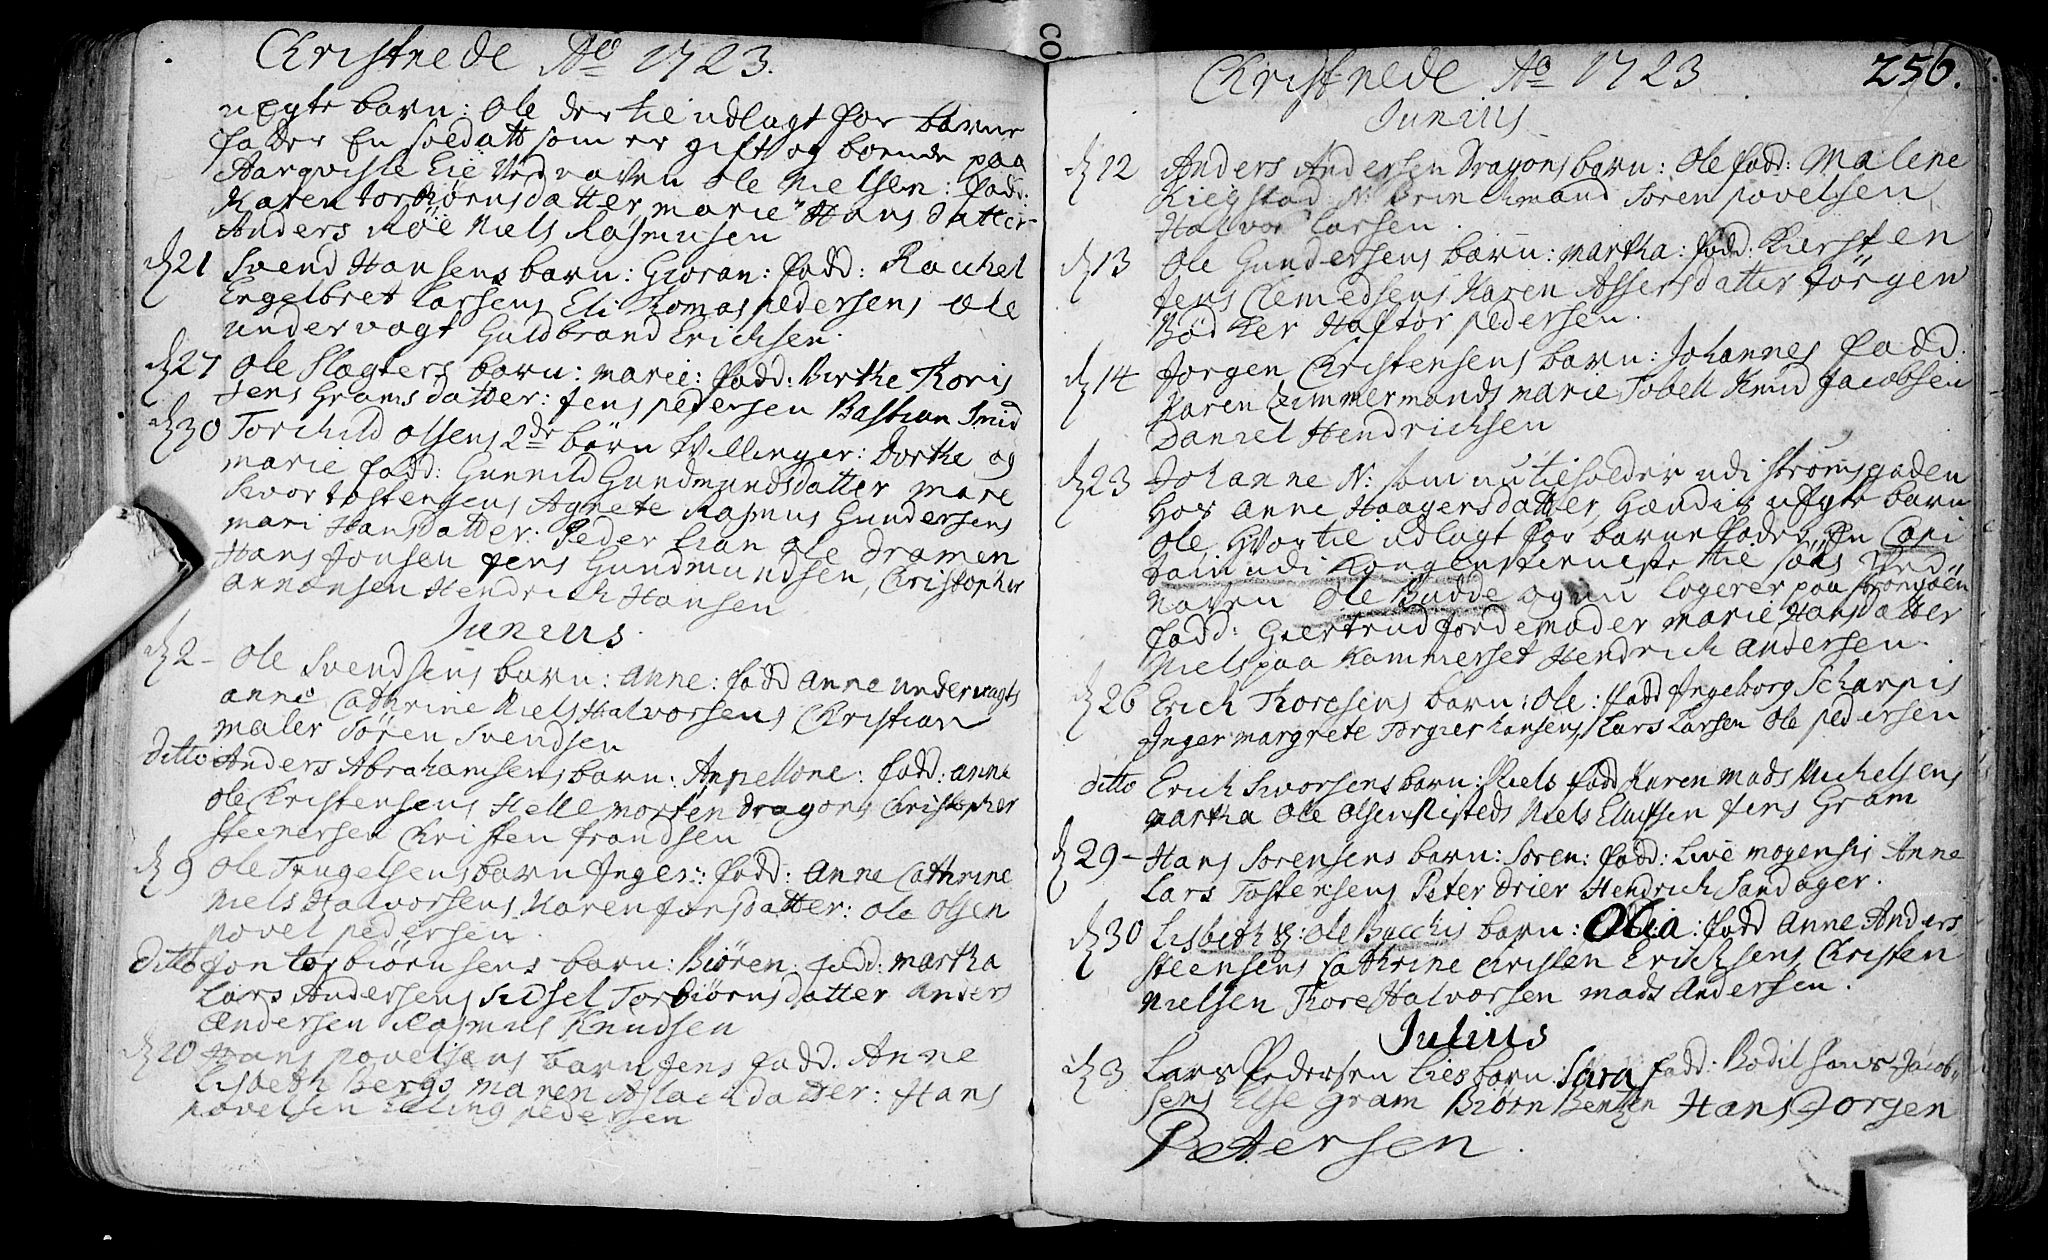 Christnede Aõ 1723.
uægte barn: Ole der til udlagt for barne
fader En soldatt som er gift og boende paa
Navn Ole Nielsen: fadd:
Karen torbiørnsdatter marie Hans datter
Anders Röe Niels Rasmusen
d 21 Svend Hansens barn: Gioran: fadd: Rachel
Engelbret Larsens Eli Thomas pedersens Ole
undervagt Guldbrand Ericksen.
d 27 Ole Slagters barn: marie: fadd: Birthe Thoris
Jens Grams datter: Jens pedersen Bastian Smid
d 30 Torchild olsens 2de börn tvillinger: Dorthe og
marie fadd: Gunnild Gundmundsdatter mare
Sivor tostensens Agnete Rasmus Gundersens
mari Hansdatter. Peder Lian ole dramen
Hans Jonsen Jens Gundmundsen, Christopher
Hendrich Hansen
Junius.
d 2 - Ole Svendsens barn: Anne: fadd Anne undervagts
anne Cathrine Niels Halvorsens Christian
maler Sören Svendsen
ditto Anders Abrahamsens barn: Appellone: fadd: anne
ole Christensens Helle morten dragons Christopher
steenersen Christen frandsen
d 9 Ole Trugelsens barn Inger: fadd: Anne Cathrine
Niels Halvorsens Karen Jensdatter: ole olsen
povel pedersen.
ditto Jon torbiörnsens barn: Biören: fadd: martha
Lars Andersens Sidsel Torbiörnsdatter Anders
Andersen Rasmus Knudsen
d 20 Hans povelsens barn Jens fadd. Anne
Lisbeth Bergs maren Aslachdatter: Hans
povelsen Elling pedersen
Christnede Aõ 1723 256.
Junius
d 12 Anders Andersen Dragons barn: Ole fadd: Malene
Kiegstad N: Brinchmand Soren povelsen
Halvor Larsen.
d 13 Ole Gundersens barn: martha: fadd: Kiersten
Jens Clemedsens Karen Assersdatter törgen
Bödker Haftor pedersen.
d 14 Jorgen Christensens barn: Johannes fadd:
Karen Zimmermands marie Tobell Knud Jacobsen
Daniel Hendricksen
d 23 Johanne N: som nu tilholder udi strömsgaden
hos Anne Haagensdatter, Hendis uægte barn
Ole Hvortil udlagt for barne fader En Capi
tain udi Kongens tieneste til söes Ved
naven Ole Budde og nu logerer paa strömsöen
fadd: Giertrud Jordemoder marie Hansdatter
Niels paa Kammerset Hendrich Andersen.
d 26 Erich Thoresens barn: Ole: fadd Ingeborg Scharpis
Inger margrete Torgier hansens Lars Larsen Ole pedersen
ditto Erich Sivorsens barn: Niels fadd Karen mads Michelsens
martha Ole Olsen Risteds Niels Elluffsen Jens Gram
d 29 - Hans Sorensens barn: Soren: fadd: Live mogensis Anne
Lars Tostensens Peter Drier Hendrich Sandager.
d 30 Lisbeth Ole Bacchis barn: Olia: fadd Anne Anders
steensens Cathrine Christen Ericksens Christen
Nielsen Thore Halvorsen mads Andersen.
Julius
d 3 Lars Pedersen Lies barn: Sara fadd: Bodil Hans Jacob
sens Else Gram Biörn Bentzen Hans Jorgen
Petersen.